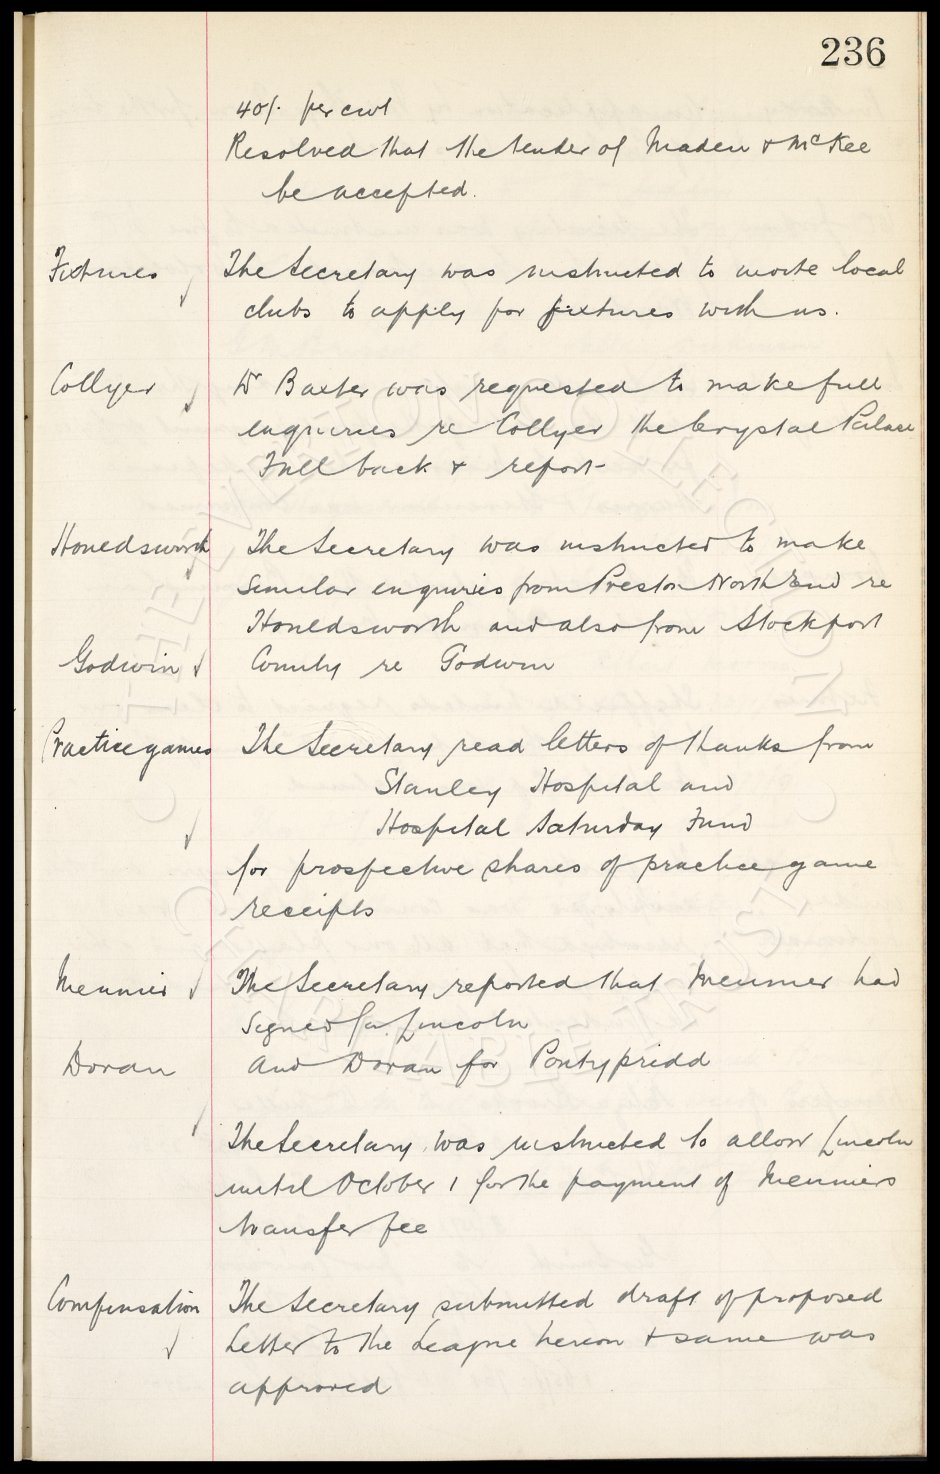 236
40/- per cwt
Resolved that the tender of Maden & McKee
be accepted.
Fixtures The Secretary was instructed to invite local
clubs to apply for fixtures with us.
Collyer Dr Baxter was requested to make full
enquiries re Collyer the Crystal Palace
Full back & report
Houldsworth The Secretary was instructed to make
similar enquiries from Preston North End re
Houldsworth and also from Stockport
Godwin County re Godwin
Practice games The Secretary read letters of thanks from
Stanley Hospital and
Hospital Saturday Fund
for prospective shares of practice game
receipts
Meunier The Secretary reported that Meunier had
signed for Lincoln
Doran and Doran for Pontypridd
The Secretary was instructed to allow Lincoln
until October 1 for the payment of Meuniers
transfer fee
Compensation The Secretary submitted draft of proposed
Letter to the League hereon & same was
approved